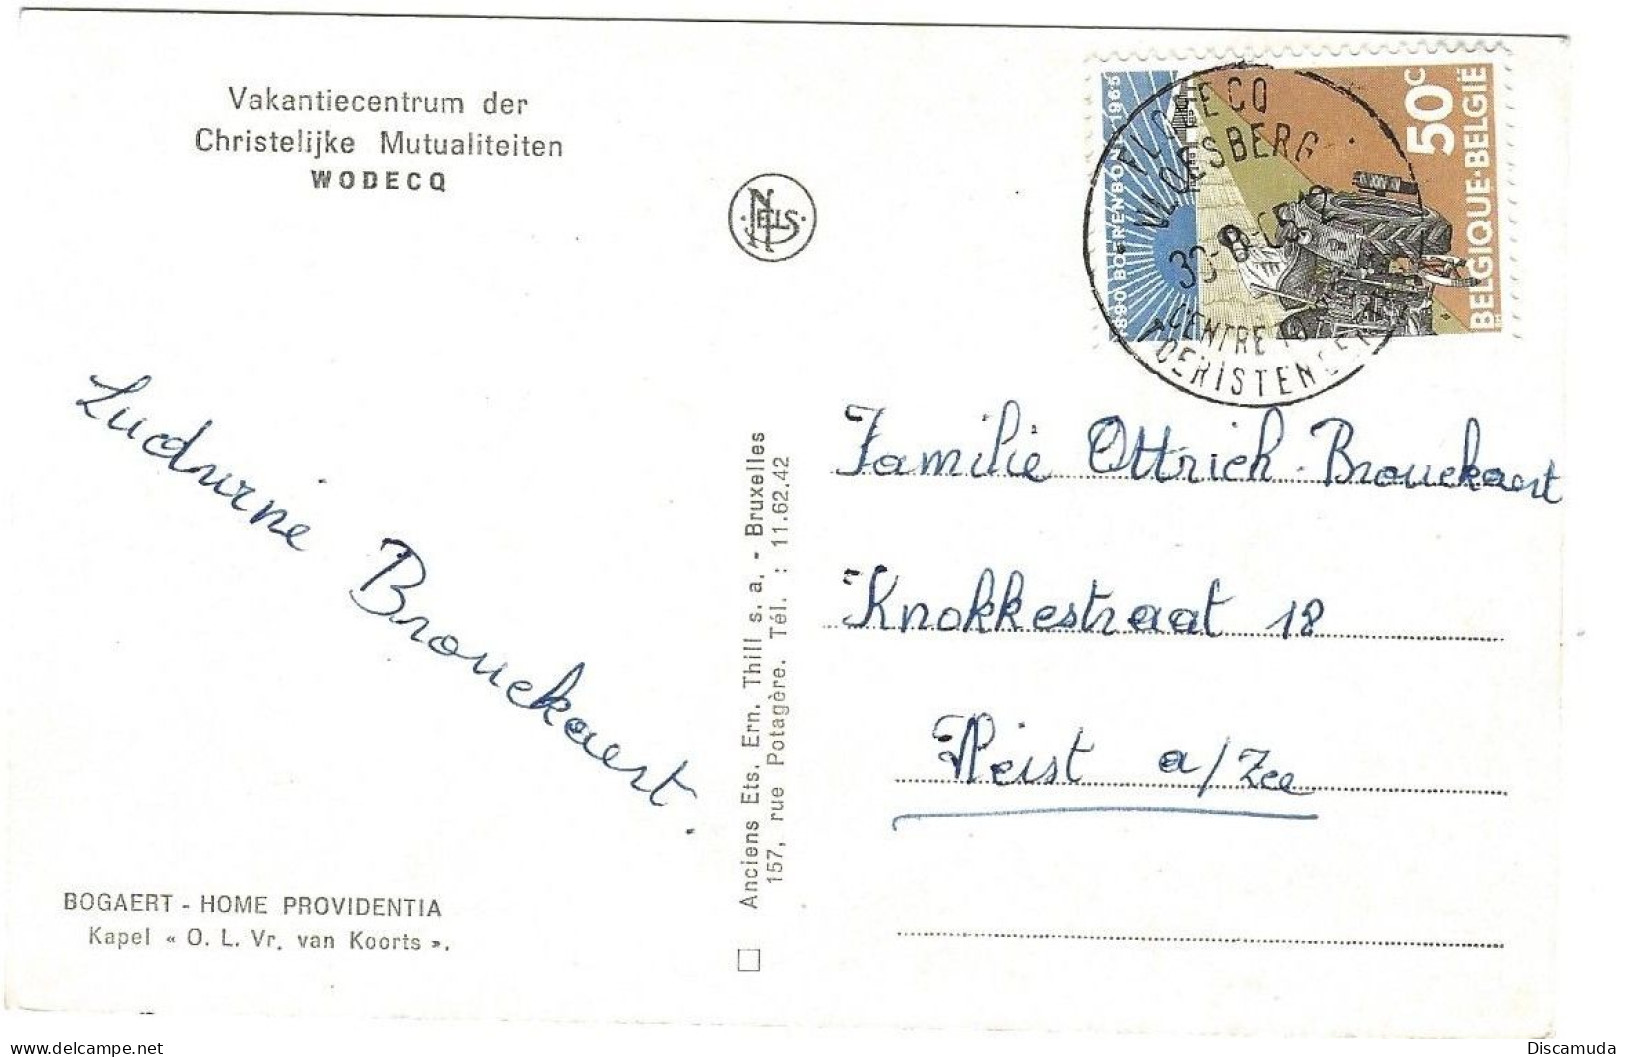 Vakantiecentrum der
Christelijke Mutualiteiten
WODECQ
NELS
1890 BOERENBOND 1965
50c
BELGIQUE-BELGIË
VLOESBERG
CENTRE
Ludwine Brouckaert.
Anciens Ets. Ern. Thill s. a. - Bruxelles
157, rue Potagère. Tél. : 11.62.42
Familie Ottrich-Brouckaert
Knokkestraat 18
Heist a/Zee
BOGAERT - HOME PROVIDENTIA
Kapel « O. L. Vr. van Koorts ».
www.delcampe.net
Discamuda